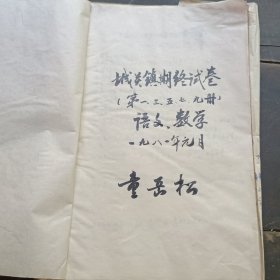 城关鎮期終試卷
(第一、三、五、七、九册)
语文、数学
一九八一年元月
童岳松